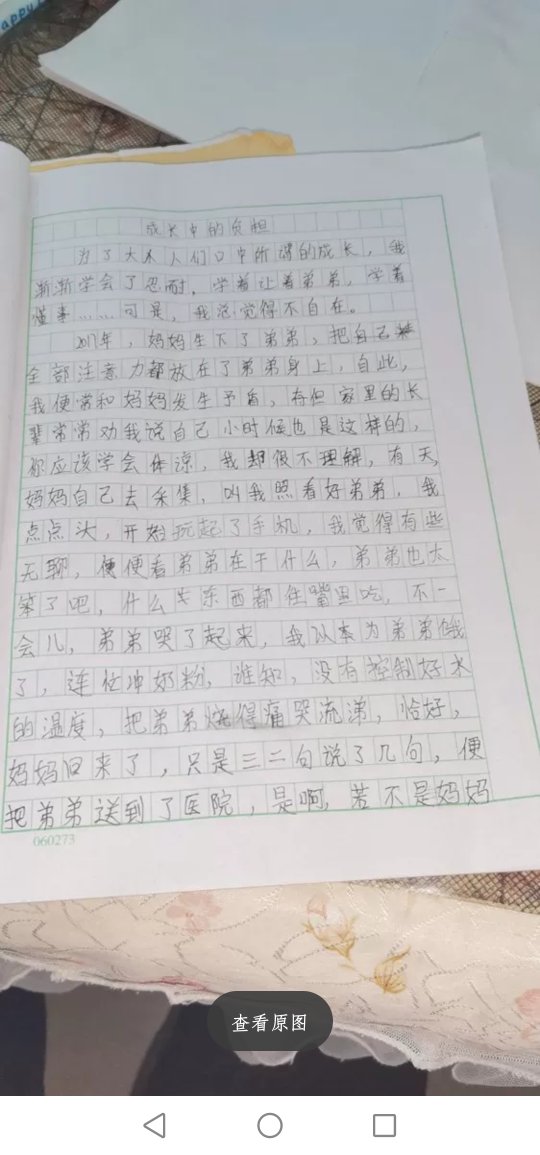 appy
成长中的负担
为了大人们口中所谓的成长，我
渐渐学会了忍耐，学着让着弟弟，学着
懂事……可是，我总觉得不自在。
2017年，妈妈生下了弟弟，把自己
全部注意力都放在了弟弟身上，自此，
我便常和妈妈发生予盾，存但家里的长
辈常常劝我说自己小时候也是这样的，
你应该学会体谅，我却很不理解，有天，
妈妈自己去采集，叫我照看好弟弟，我
点点头，开始玩起了手机，我觉得有些
无聊，便便看弟弟在干什么，弟弟也太
笨了吧，什么东西都往嘴里吃，不一
会儿，弟弟哭了起来，我以本为弟弟饿
了，连忙冲奶粉，谁知，没有控制好水
的温度，把弟弟烧得痛哭流涕，恰好，
妈妈回来了，只是三二句说了几句，便
把弟弟送到了医院，是啊，若不是妈妈
060273
查看原图